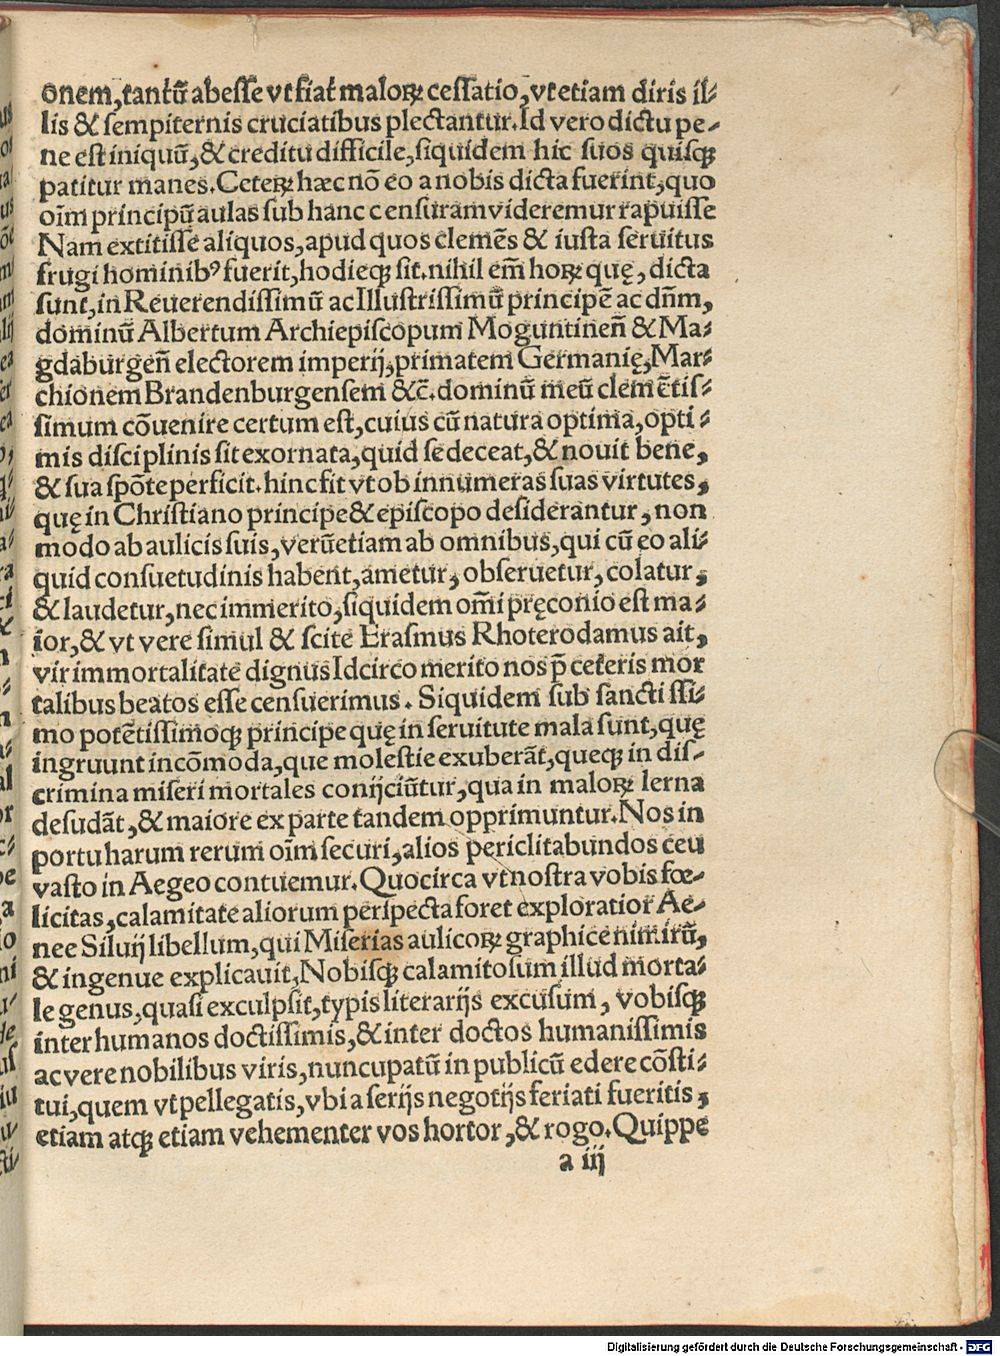 onem,tantū abesse vt fiat maloꝝ cessatio,vt etiam diris il⸗
lis & sempiternis cruciatibus plectantur.Id vero dictu pe⸗
ne est iniquū,& creditu difficile,siquidem hic suos quisqꝫ
patitur manes.Ceterꝝ hæc nō eo a nobis dicta fuerint,quo
oīm principū aulas sub hanc censuram videremur rapuisse
Nam extitisse aliquos,apud quos clemēs & iusta seruitus
frugi hominibꝰ fuerit,hodieqꝫ sit.nihil em̄ hoꝝ quę,dicta
sunt,in Reuerendissimū ac Illustrissimū principē ac dn̄m,
dominū Albertum Archiepiscopum Moguntineñ & Ma⸗
gdaburgeñ electorem imperij,primatem Germanię,Mar⸗
chionem Brandenburgensem &c̄.dominū meū clemētis⸗
simum cōuenire certum est,cuius cū natura optima,opti⸗
mis disciplinis sit exornata,quid se deceat,& nouit bene,
& sua spōte perficit.hinc fit vt ob innumeras suas virtutes,
quę in Christiano principe & episcopo desiderantur,non
modo ab aulicis suis,verūetiam ab omnibus,qui cū eo ali⸗
quid consuetudinis habent,ametur,obseruetur,colatur,
& laudetur,nec immerito,siquidem om̄i pręconio est ma⸗
ior,& vt vere simul & scite Erasmus Rhoterodamus ait,
vir immortalitate dignus Idcirco merito nos p̄ ceteris mor
talibus beatos esse censuerimus. Siquidem sub sanctissi⸗
mo potētissimoqꝫ principe quę in seruitute mala sunt,quę
ingruunt incōmoda,que molestie exuberāt,queqꝫ in dis⸗
crimina miseri mortales conijciūtur,qua in maloꝝ lerna
desudāt,& maiore ex parte tandem opprimuntur.Nos in
portu harum rerum oīm securi,alios periclitabundos ceu
vasto in Aegeo contuemur.Quocirca vt nostra vobis fœ⸗
licitas,calamitate aliorum perspecta foret exploratior Ae⸗
nee Siluij libellum,qui Miserias aulicoꝝ graphice nimirū,
& ingenue explicauit,Nobisqꝫ calamitosum illud morta⸗
le genus,quasi exculpsit,typis literarijs excusum, vobisqꝫ
inter humanos doctissimis,& inter doctos humanissimis
ac vere nobilibus viris,nuncupatū in publicū edere cōsti⸗
tui,quem vt pellegatis,vbi a serijs negotijs feriati fueritis,
etiam atqꝫ etiam vehementer vos hortor,& rogo.Quippe
a iij
Digitalisierung gefördert durch die Deutsche Forschungsgemeinschaft - DFG